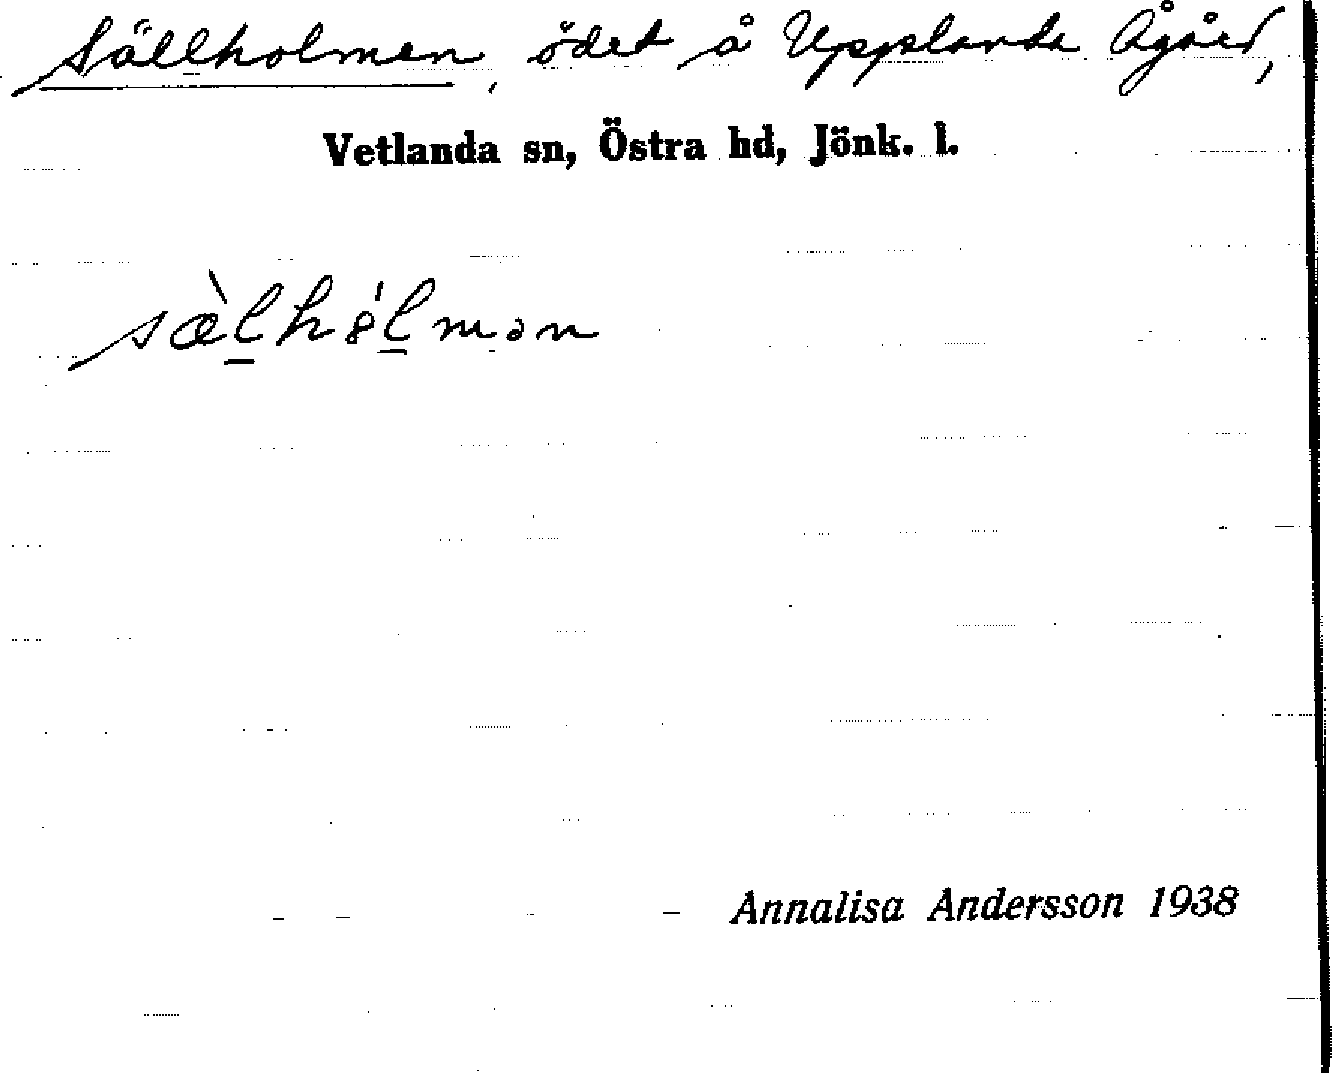 Sällholmen, ödet å Upplanda Ågård,
Vetlanda sn, Östra hd, Jönk. l.
sæ̀l̲hól̲mən
Annalisa Andersson 1938